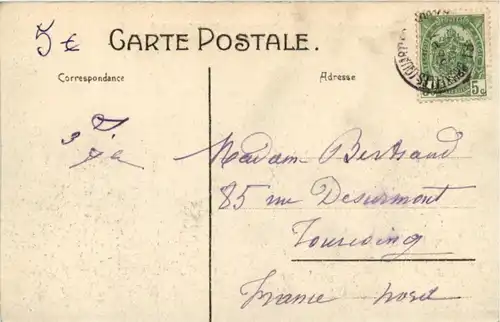 5 €
CARTE POSTALE.
Correspondance
Adresse
5c
Madam Bertrand
85 rue Desurmont
Tourcoing
France Nord